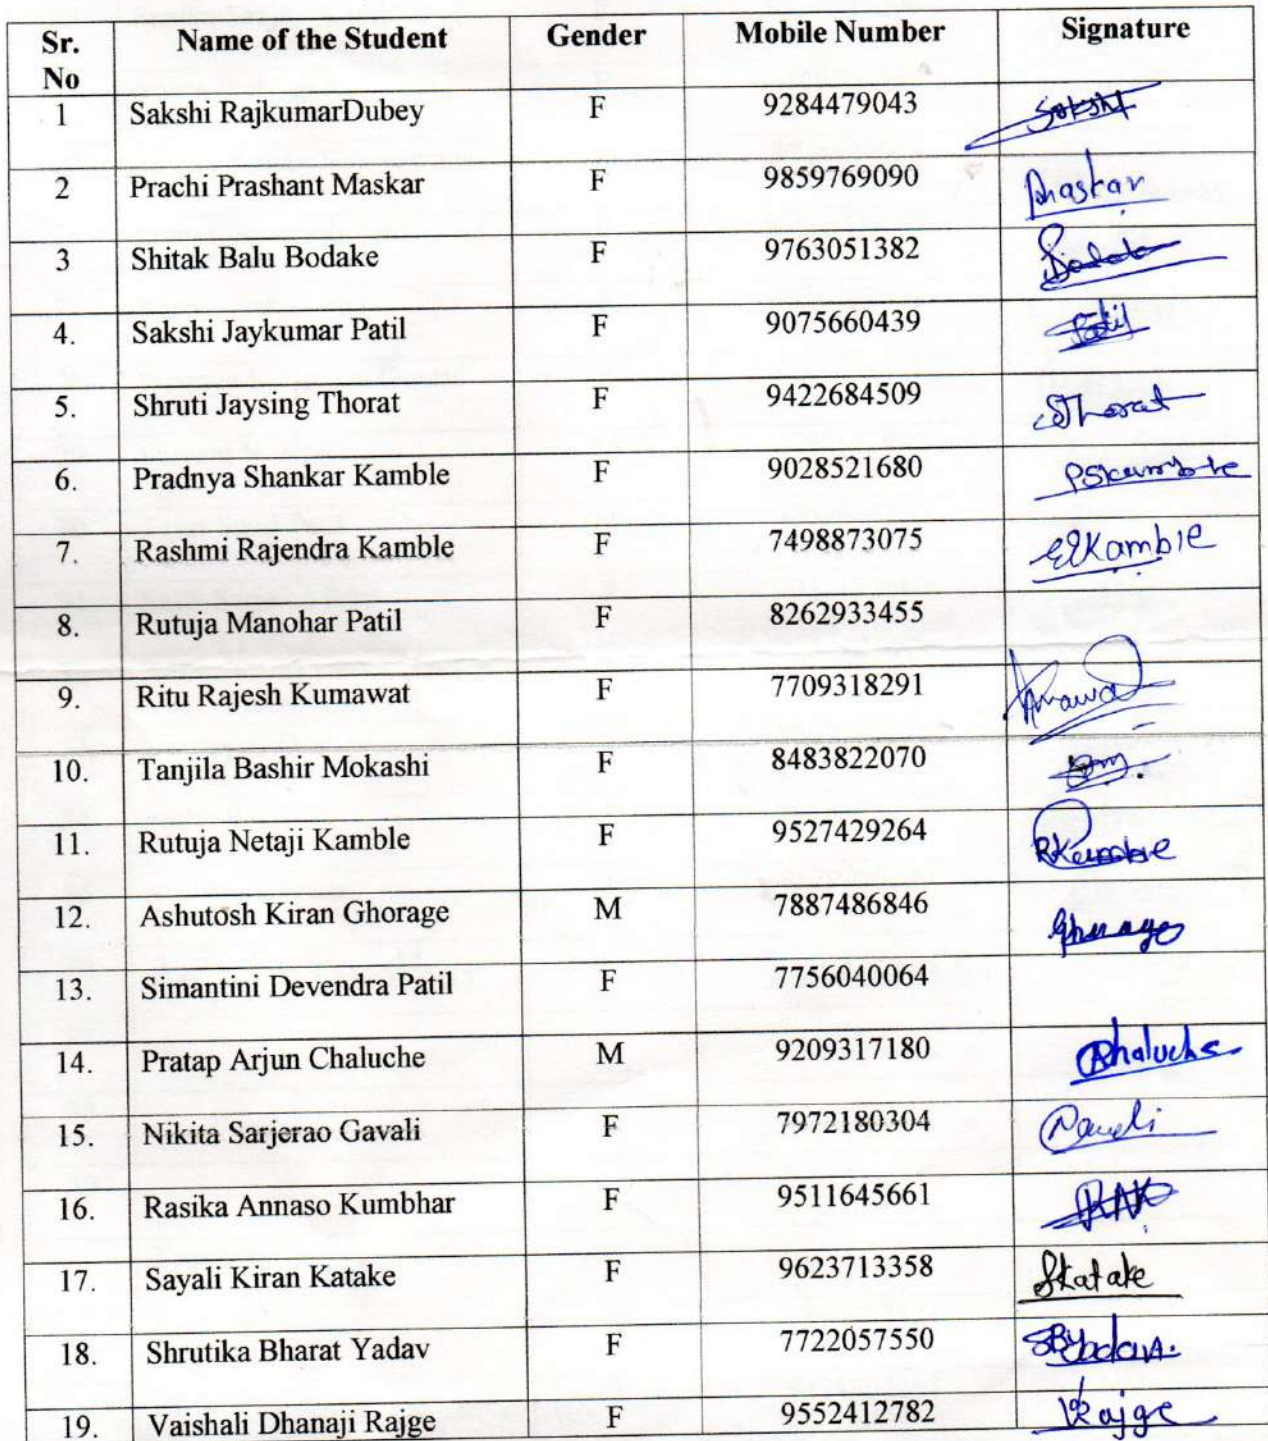 Sr. No Name of the Student Gender Mobile Number Signature
1 Sakshi RajkumarDubey F 9284479043 Sakshi
2 Prachi Prashant Maskar F 9859769090
3 Shitak Balu Bodake F 9763051382
4. Sakshi Jaykumar Patil F 9075660439 Patil
5. Shruti Jaysing Thorat F 9422684509 SThorat
6. Pradnya Shankar Kamble F 9028521680 PSKamble
7. Rashmi Rajendra Kamble F 7498873075
8. Rutuja Manohar Patil F 8262933455
9. Ritu Rajesh Kumawat F 7709318291
10. Tanjila Bashir Mokashi F 8483822070
11. Rutuja Netaji Kamble F 9527429264 RKamble
12. Ashutosh Kiran Ghorage M 7887486846
13. Simantini Devendra Patil F 7756040064
14. Pratap Arjun Chaluche M 9209317180
15. Nikita Sarjerao Gavali F 7972180304
16. Rasika Annaso Kumbhar F 9511645661 RAK
17. Sayali Kiran Katake F 9623713358 SKatake
18. Shrutika Bharat Yadav F 7722057550 SBYadav.
19. Vaishali Dhanaji Rajge F 9552412782 VRajge